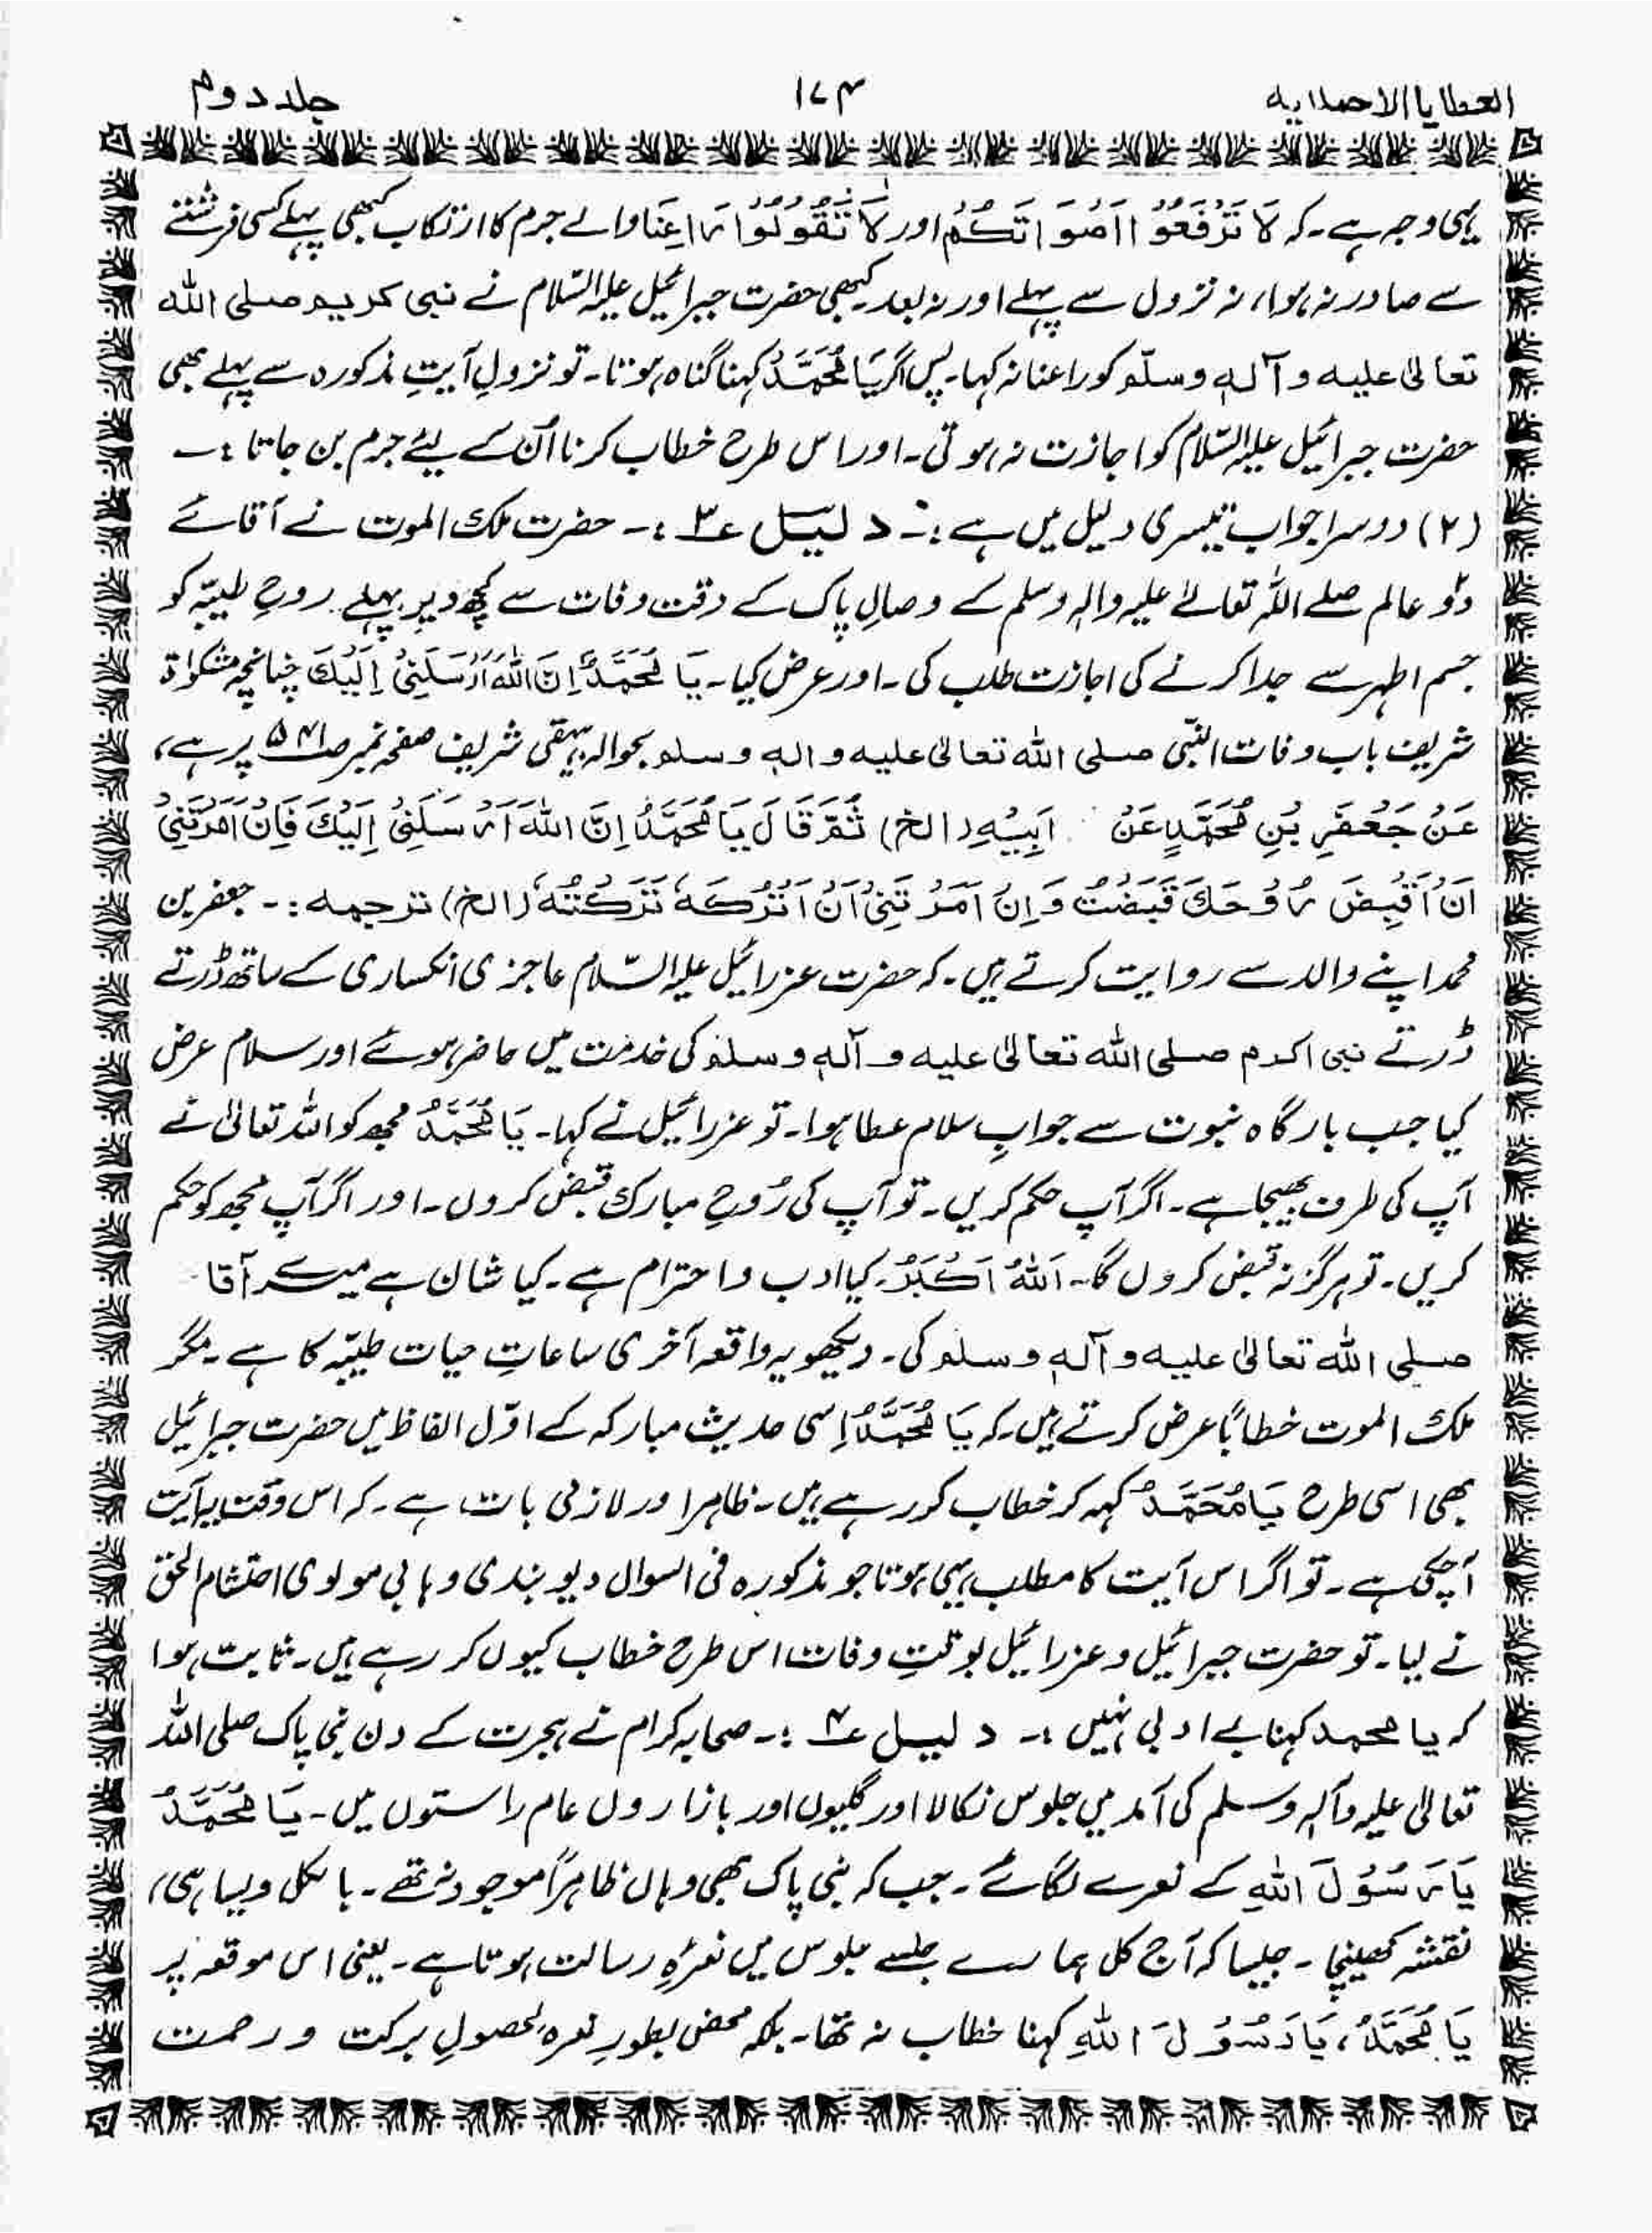 العطایا الاحمدیہ ۱۷۴ جلد دوم
یہی وجہ ہے۔ کہ لَا تَرْفَعُوْا اَصْوَاتَكُمْ اور لَا تَقُوْلُوْا رَاعِنَا والے جرم کا ارتکاب کبھی پہلے کسی فرشتے
سے صادر نہ ہوا، نہ نزول سے پہلے اور نہ بعد۔ کبھی حضرت جبرائیل علیہ السّلام نے نبی کریم صلی اللہ
تعالیٰ علیہ و آلہٖ وسلّم کو راعنا نہ کہا۔ پس اگر یَا مُحَمَّدُ کہنا گناہ ہوتا۔ تو نزولِ آیتِ مذکورہ سے پہلے بھی
حضرت جبرائیل علیہ السّلام کو اجازت نہ ہوتی۔ اور اس طرح خطاب کرنا اُن کے لیئے جرم بن جاتا :۔
(۲) دوسرا جواب تیسری دلیل میں ہے :۔ دلیل ع۳ :۔ حضرت ملک الموت نے آقائے
دوٗ عالم صلے اللہ تعالےٰ علیہ والہٖ وسلم کے وصالِ پاک کے وقت وفات سے کچھ دیر پہلے روحِ طیّبہ کو
جسم اطہر سے جدا کرنے کی اجازت طلب کی۔ اور عرض کیا۔ یَا مُحَمَّدُ اِنَّ اللهَ اَرْسَلَنِیْ اِلَیْكَ چنانچہ مشکوٰۃ
شریف باب وفات النّبی صلی اللہ تعالیٰ علیہ و الہٖ وسلم بحوالہ بیہقی شریف صفحہ نمبر ص۵۴۱ پر ہے،
عَنْ جَعْفَرِ بْنِ مُحَمَّدٍ عَنْ اَبِیْهِ (الخ) ثُمَّ قَالَ یَا مُحَمَّدُ اِنَّ اللهَ اَرْسَلَنِیْ اِلَیْكَ فَاِنْ اَمَرْتَنِیْ
اَنْ اَقْبِضَ رُوْحَكَ قَبَضْتُ وَ اِنْ اَمَرْتَنِیْ اَنْ اَتْرُكَهٗ تَرَكْتُهٗ (الخ) ترجمہ :۔ جعفر بن
محمد اپنے والد سے روایت کرتے ہیں۔ کہ حضرت عزرائیل علیہ السّلام عاجزی انکساری کے ساتھ ڈرتے
ڈرتے نبی اکرم صلی اللہ تعالیٰ علیہ و آلہٖ وسلم کی خدمت میں حاضر ہوئے اور سلام عرض
کیا جب بارگاہ نبوت سے جوابِ سلام عطا ہوا۔ تو عزرائیل نے کہا۔ یَا مُحَمَّدُ مجھ کو اللہ تعالیٰ نے
آپ کی طرف بھیجا ہے۔ اگر آپ حکم کریں۔ تو آپ کی رُوحِ مبارک قبض کروں۔ اور اگر آپ مجھ کو حکم
کریں۔ تو ہرگز نہ قبض کروں گا۔ اَللهُ اَكْبَرُ۔ کیا ادب و احترام ہے۔ کیا شان ہے میرے آقا
صلی اللہ تعالیٰ علیہ و آلہٖ وسلم کی۔ دیکھو یہ واقعہ آخری ساعاتِ حیات طیّبہ کا ہے۔ مگر
ملک الموت خطاباً عرض کرتے ہیں۔ کہ یَا مُحَمَّدُ اِسی حدیث مبارکہ کے اوّل الفاظ میں حضرت جبرائیل
بھی اسی طرح یَا مُحَمَّدُ کہہ کر خطاب کر رہے ہیں۔ ظاہر اور لازمی بات ہے۔ کہ اس وقت یہ آیت
آچکی ہے۔ تو اگر اس آیت کا مطلب یہی ہوتا جو مذکورہ فی السوال دیوبندی وہابی مولوی احتشام الحق
نے لیا۔ تو حضرت جبرائیل و عزرائیل بوقتِ وفات اس طرح خطاب کیوں کر رہے ہیں۔ ثابت ہوا
کہ یا محمد کہنا بے ادبی نہیں :۔ دلیل ع۴ :۔ صحابہ کرام نے ہجرت کے دن نبی پاک صلی اللہ
تعالیٰ علیہ وآلہٖ وسلم کی آمد میں جلوس نکالا اور گلیوں اور بازاروں عام راستوں میں۔ یَا مُحَمَّدُ
یَا رَسُوْلَ اللهِ کے نعرے لگائے۔ جب کہ نبی پاک بھی وہاں ظاہراً موجود نہ تھے۔ بالکل ویسا ہی،
نقشہ کھینچا۔ جیسا کہ آج کل ہمارے جلسے جلوس میں نعرۂ رسالت ہوتا ہے۔ یعنی اس موقعہ پر
یَا مُحَمَّدُ، یَا رَسُوْلَ اللهِ کہنا خطاب نہ تھا۔ بلکہ محض بطورِ نعرہ لحصولِ برکت و رحمت